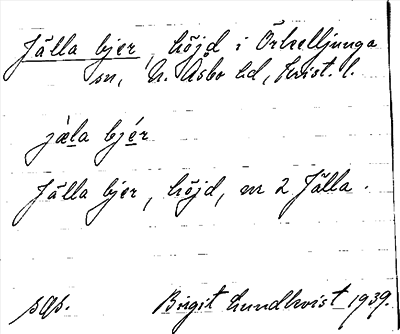 Jälla bjer, höjd i Örkelljunga
sn, N. Åsbo hd, Krist. l.
jæ̀la bjér
Jälla bjer, höjd, nr 2 Jälla.
sgs. Birgit Lundkvist 1939.